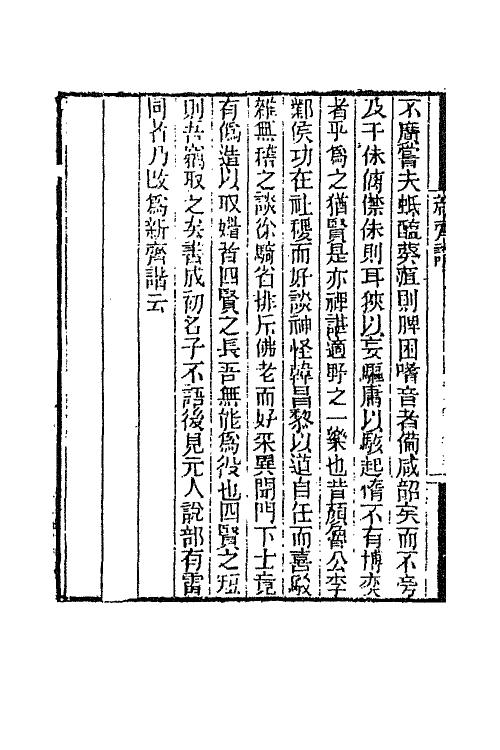 新齊諧
不廣嘗夫蚳醢葵菹則脾困嗜音者備咸韶矣而不旁
及于侏𠌯僸佅則耳狹以妄驅庸以駭起惰不有博奕
者乎爲之猶賢是亦裨諶適野之一樂也昔顏魯公李
鄴侯功在社稷而好談神怪韓昌黎以道自任而喜駁
雜無稽之談徐騎省排斥佛老而好采異聞門下士竟
有僞造以取媚者四賢之長吾無能爲役也四賢之短
則吾竊取之矣書成初名子不語後見元人說部有雷
同者乃改爲新齊諧云